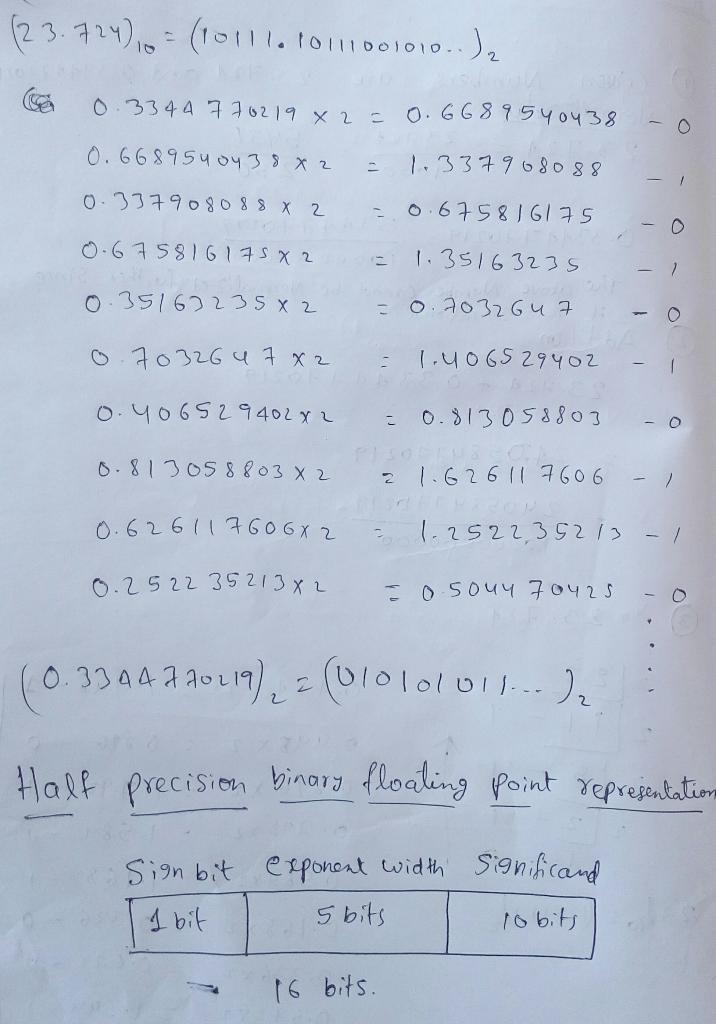 (23.724)₁₀ = (10111.10111001010..)₂
0.3344770219 x 2 = 0.6689540438 - 0
0.6689540438 x 2 = 1.337908088 - 1
0.337908088 x 2 = 0.675816175 - 0
0.675816175 x 2 = 1.35163235 - 1
0.35163235 x 2 = 0.7032647 - 0
0.7032647 x 2 = 1.406529402 - 1
0.406529402 x 2 = 0.813058803 - 0
0.813058803 x 2 = 1.626117606 - 1
0.626117606 x 2 = 1.252235213 - 1
0.252235213 x 2 = 0.504470425 - 0
(0.3344770219)₂ = (010101011...)₂
Half precision binary floating point representation
Sign bit exponent width Significand
1 bit 5 bits 10 bits
→ 16 bits.